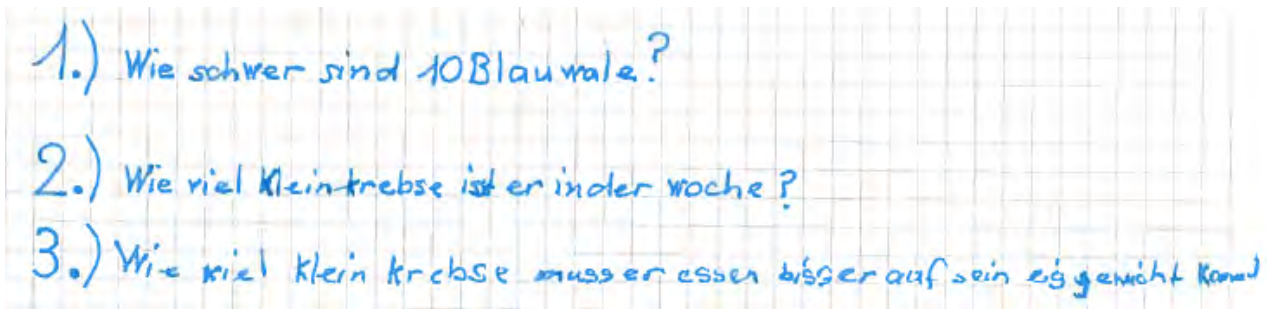 1.) Wie schwer sind 10 Blauwale?
2.) Wie viel Kleinkrebse ist er in der woche?
3.) Wie viel klein krebse muss er essen bisser auf sein eggewicht kommt